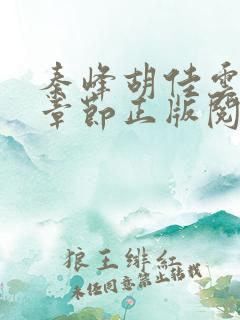 秦峰胡佳雲
章節正版閱
狼王緋紅
未经同意禁止转载